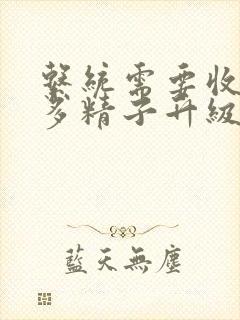 繫統需要收
多精子升級
藍天無塵